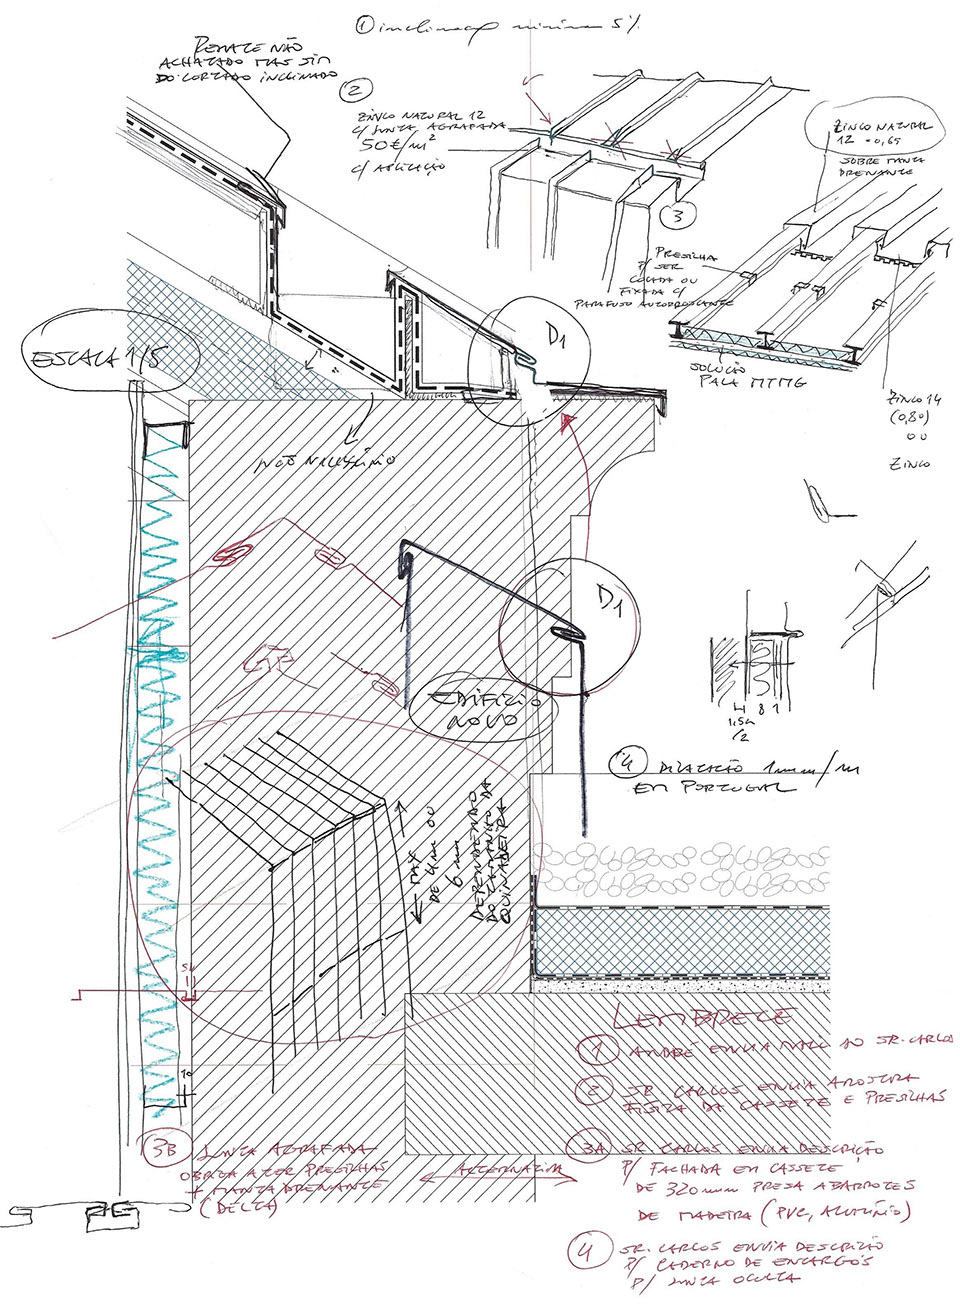 ① inclinação mínima 5%
REMATE NÃO
ACHATADO MAS SIM
DO CORTADO INCLINADO
②
ZINCO NATURAL 12
C/ JUNTA AGRAFADA
50€/m²
C/ APLICAÇÃO
③
ZINCO NATURAL
12 = 0,65
SOBRE MANTA
DRENANTE
PRESILHA
P/ SER
COLADA OU
FIXADA C/
PARAFUSO AUTOPERFURANTE
SOLUÇÃO
PALA MTMG
ZINCO 14
(0,80)
OU
ZINCO
ESCALA 1/5
D1
NÃO NECESSÁRIO
D1
EDIFÍCIO
NOVO
4 8 1
④ DILATAÇÃO 1mm/m
EM PORTUGAL
MAX
DE 4m OU
6m
DEPENDENDO
DO TAMANHO DA
QUINADEIRA
10
LEMBRETE
① ANDRÉ ENVIA MAIL AO SR. CARLOS
② SR CARLOS ENVIA AMOSTRA
FÍSICA DA CASSETE E PRESILHAS
③A SR CARLOS ENVIA DESCRIÇÃO
P/ FACHADA EM CASSETE
DE 320mm PRESA A BARROTES
DE MADEIRA (PVC, ALUMÍNIO)
④ SR. CARLOS ENVIA DESCRIÇÃO
P/ CADERNO DE ENCARGOS
P/ JUNTA OCULTA
③B JUNTA AGRAFADA
OBRIGA A TER PRESILHAS
+ MANTA DRENANTE
(DELTA)
ALTERNATIVA